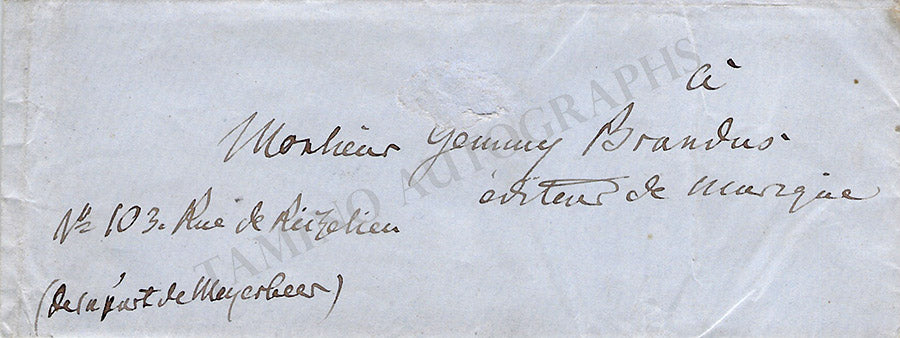 à
Monsieur Gemmy Brandus
éditeur de musique
Nº 103. Rue de Richelieu
(de la part de Meyerbeer)
TAMINO AUTOGRAPHS